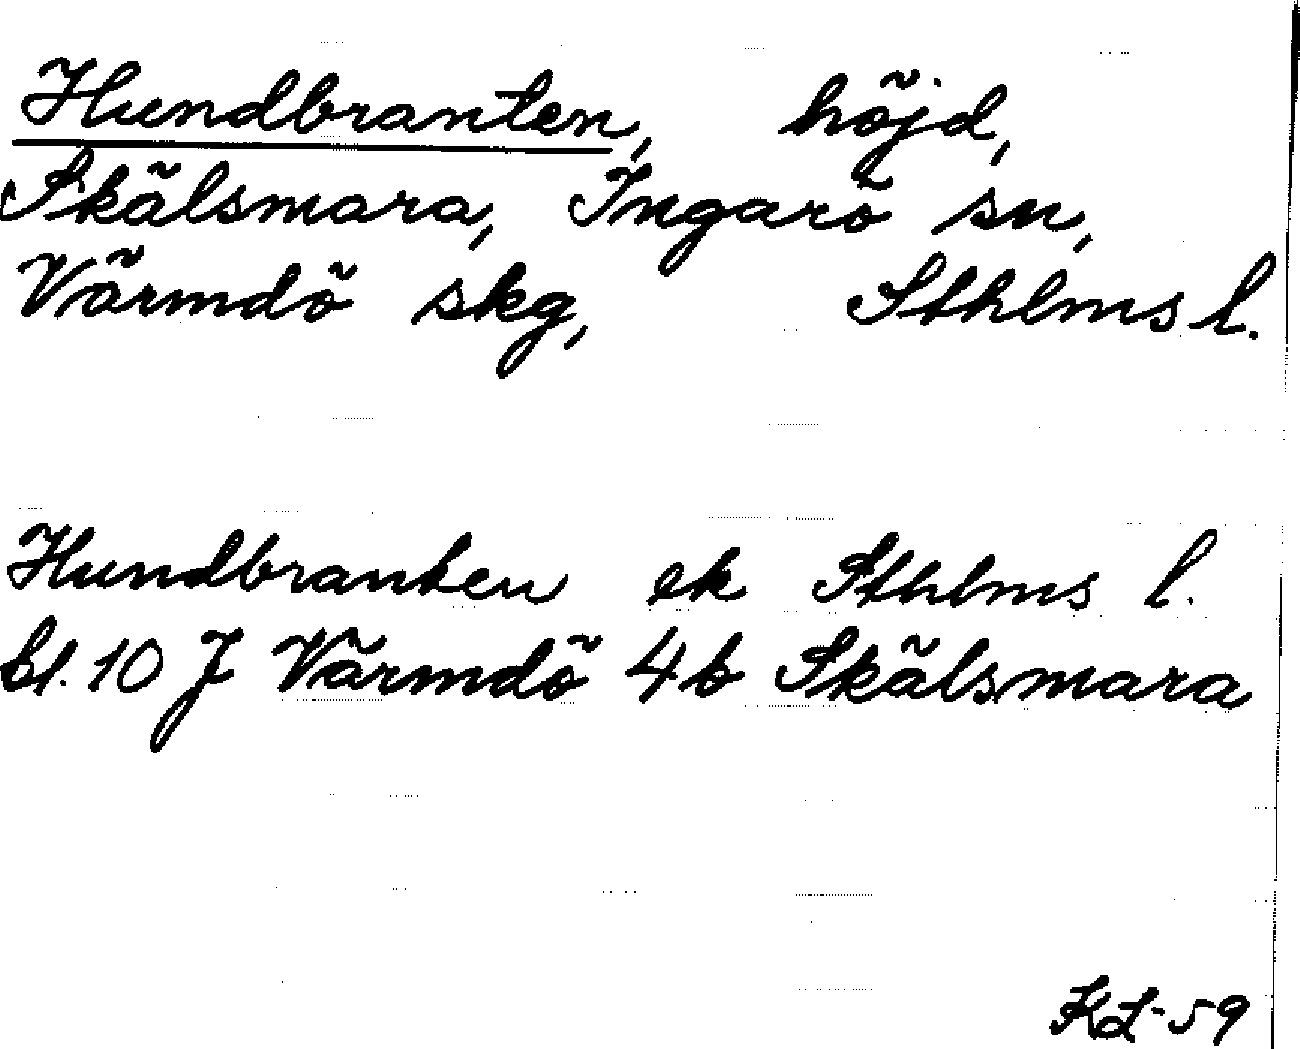 Hundbranten, höjd,
Skälsmara, Ingarö sn,
Värmdö skg, Sthlms l.
Hundbranten ek Sthlms l.
bl. 10 J Värmdö 4 b Skälsmara
KL-59